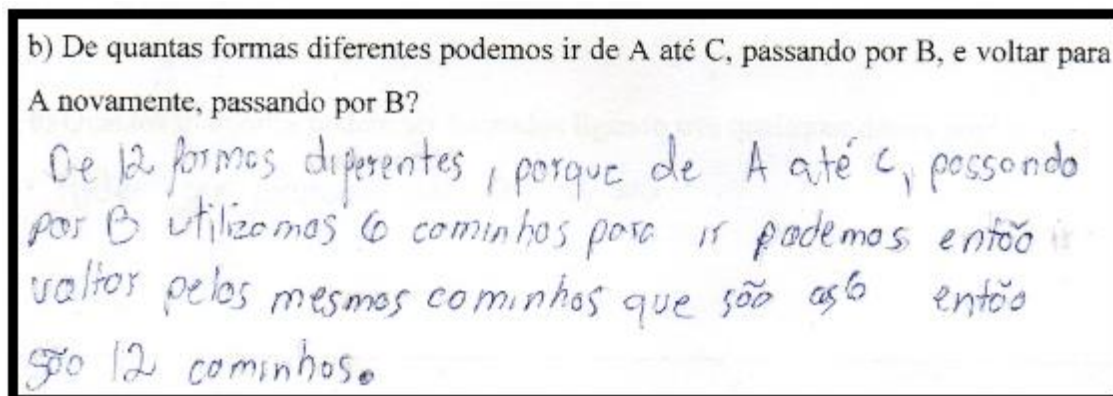 b) De quantas formas diferentes podemos ir de A até C, passando por B, e voltar para
A novamente, passando por B?
De 12 formas diferentes, porque de A até C, passando
por B utilizamos 6 caminhos para ir podemos então
voltar pelos mesmos caminhos que são as 6 então
são 12 caminhos.